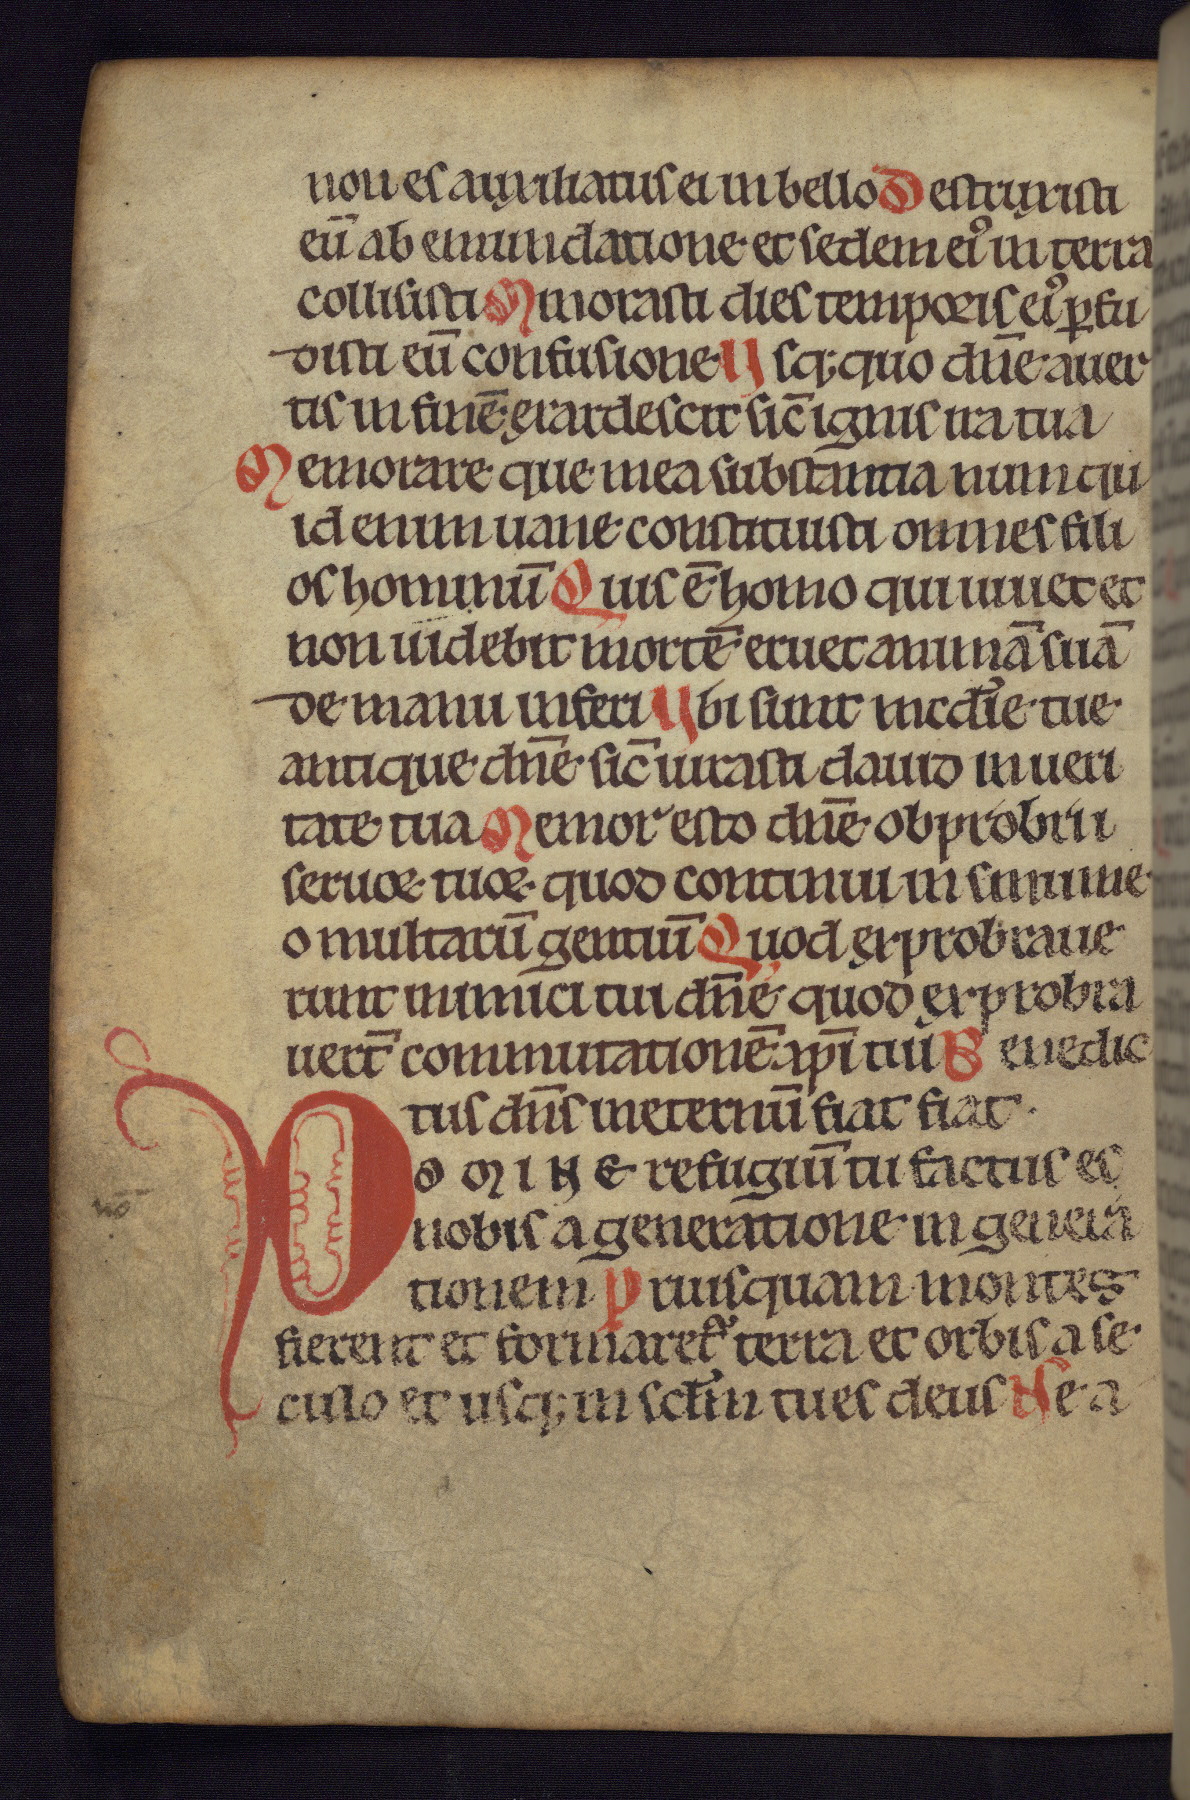 non es auxiliatus ei in bello Destruxisti
eū ab emundatione et sedem eiꝰ in terra
collisisti Minorasti dies temporis eiꝰ ꝑfu
disti eū confusione Usq; quo dn̄e auer
tis in finē exardescit sic̄ ignis ira tua
Memorare que mea substantia numqu
id enim uane constituisti omnes fili
os hominū Quis ē homo qui uiuet et
non uidebit mortē eruet animā suā
de manu inferi Ubi sunt mc̄die tue
antique dn̄e sic̄ iurasti dauid in ueri
tate tua Memor esto dn̄e obprobrii
seruoꝝ tuoꝝ quod continui in sinu me
o multarū gentiū Quod exprobraue
runt inimici tui dn̄e quod exprobra
uert̄ commutationē xp̄i tui Benedic
tus dn̄s in eternū fiat fiat.
DOMINE refugiū tu factus es
nobis a generatione in genera
tionem Priusquam montes
fierent et formaret᷑ terra et orbis a se
culo et usq; in sclm̄ tu es deus Ne a